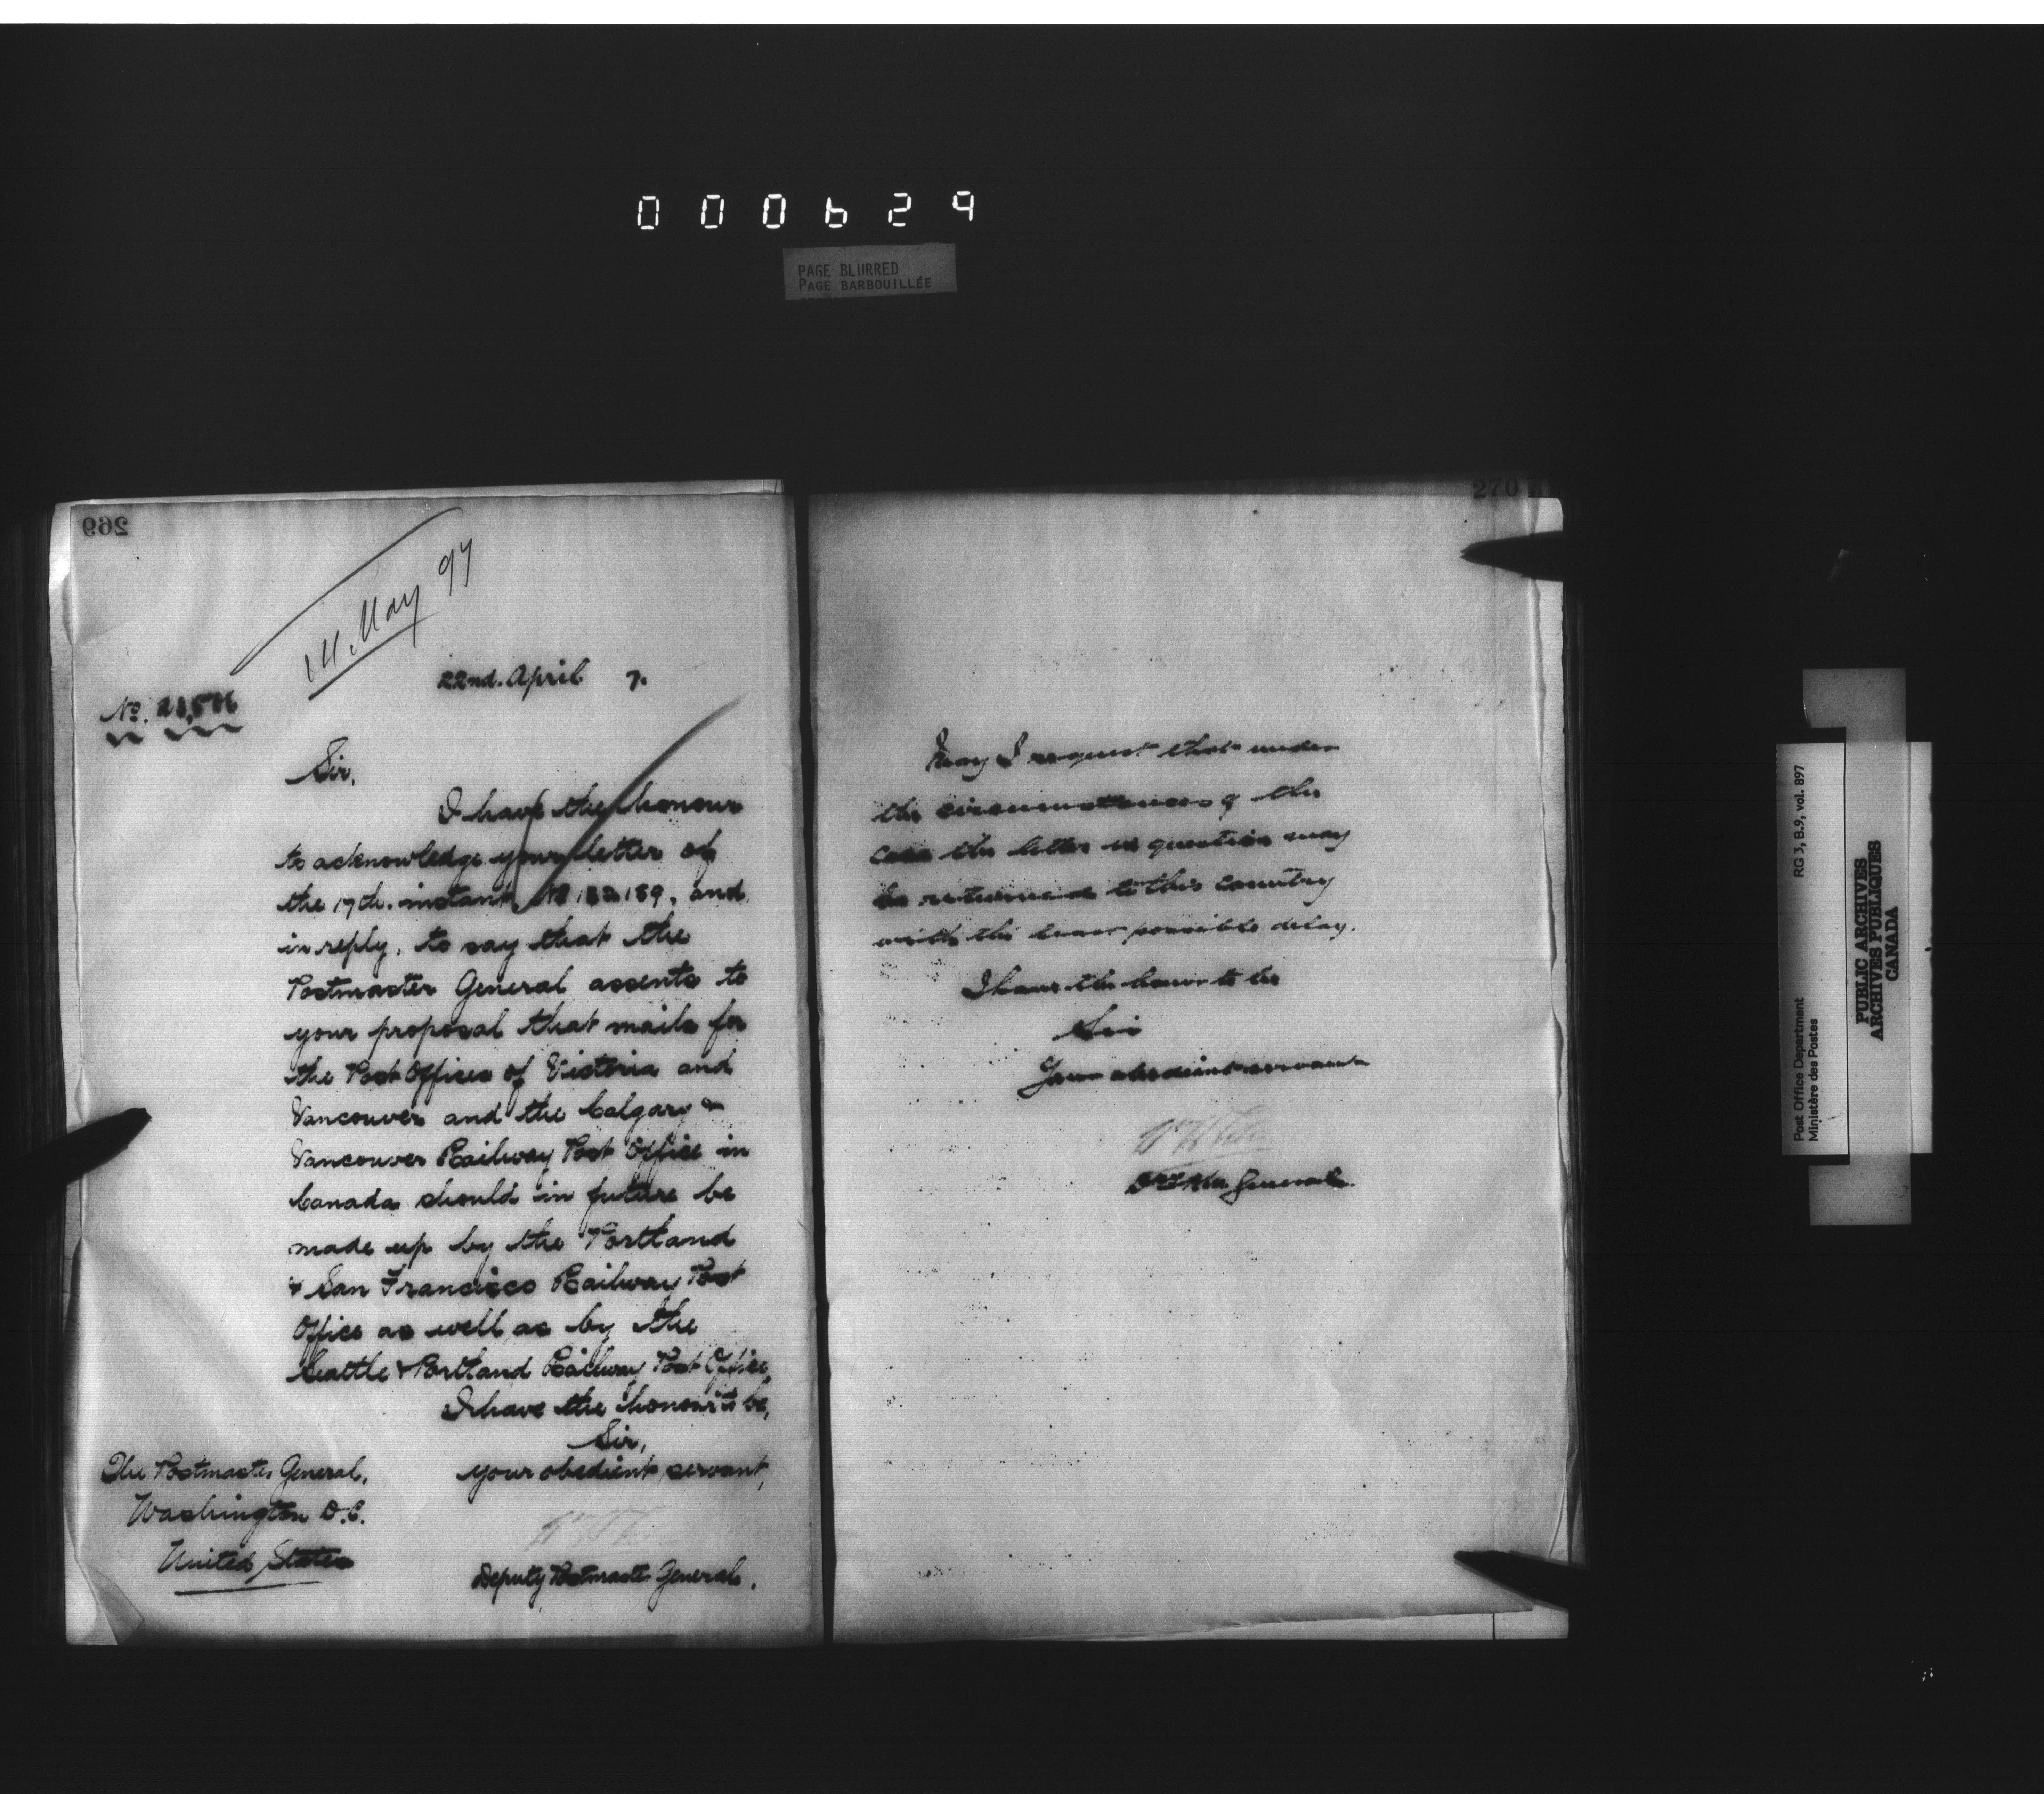 000629
PAGE BLURRED
PAGE BARBOUILLÉE
269
14. May 97
22nd. April 7.
No.
Sir,
I have the honour
to acknowledge your letter of
the 17th. instant, No 182189, and
in reply, to say that the
Postmaster General assents to
your proposal that mails for
the Post Offices of Victoria and
Vancouver and the Calgary &
Vancouver Railway Post Office in
Canada should in future be
made up by the Portland
& San Francisco Railway Post
Office as well as by the
Seattle & Portland Railway Post Office.
I have the honour to be,
Sir,
your obedient servant,
Deputy Postmaster General.
The Postmaster General,
Washington D.C.
United States
270
May I request that under
the circumstances of the
case the letter in question may
be returned to this country
with the least possible delay.
I have the honor to be
Sir
Your obedient servant
General.
Post Office Department
Ministère des Postes
RG 3, B.9, vol. 897
PUBLIC ARCHIVES
ARCHIVES PUBLIQUES
CANADA